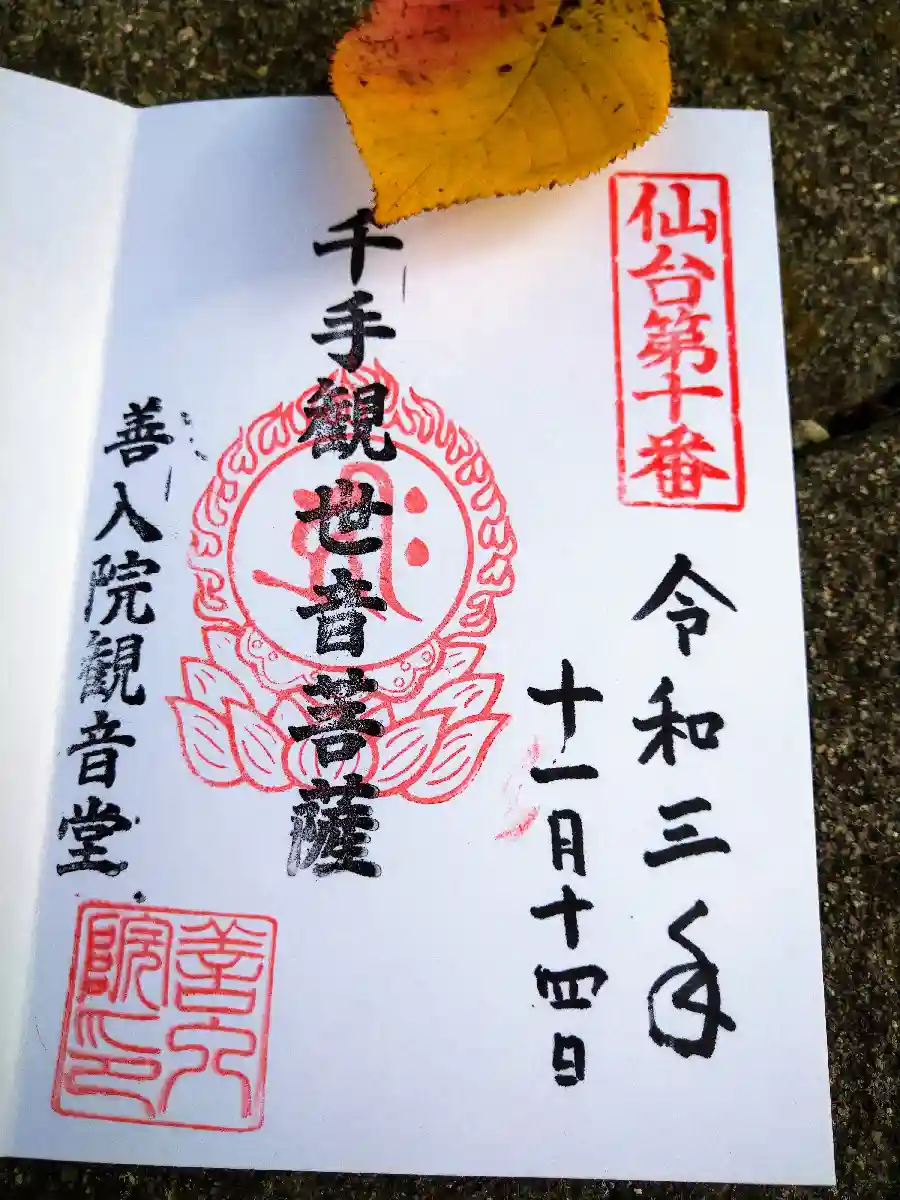 仙台第十番
令和三年
十一月十四日
千手観世音菩薩
善入院観音堂
善入
院印